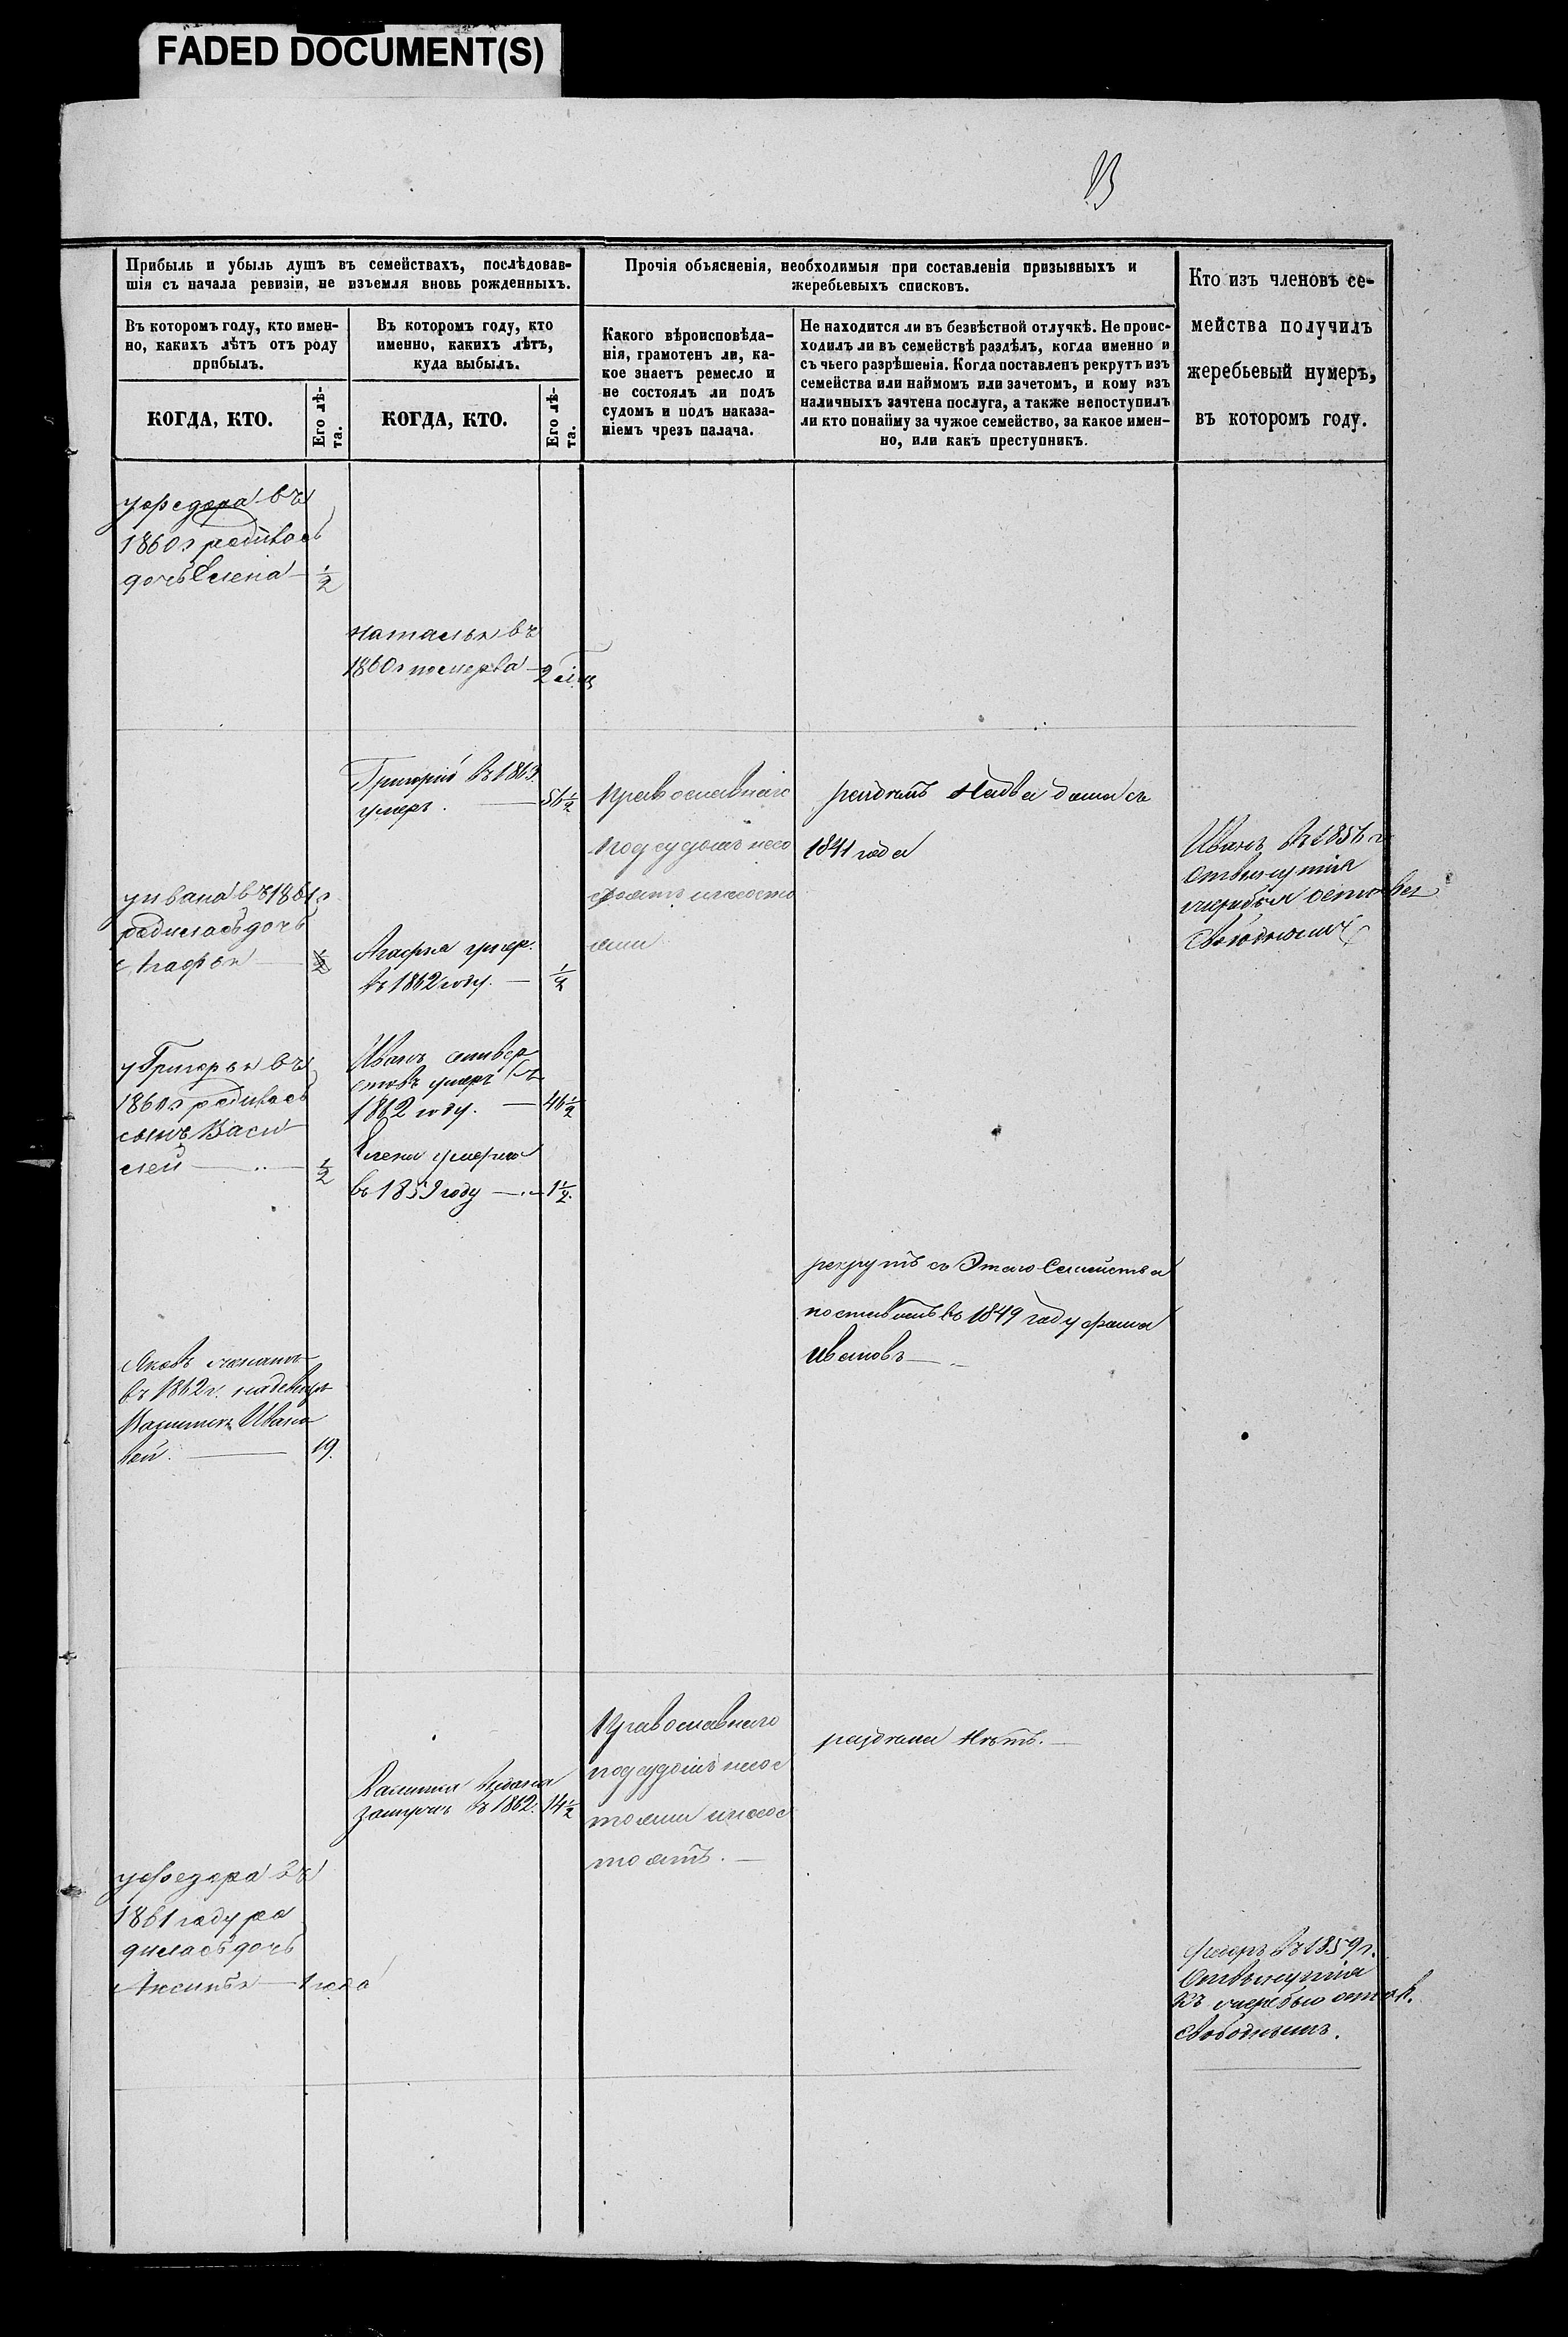 FADED DOCUMENT(S)
Прибыль и убыль душъ въ семействахъ, послѣдовав-
шія съ начала ревизіи, не изъемля вновь рожденныхъ.
Прочія объясненія, необходимыя при составленіи призывныхъ и
жеребьевыхъ списковъ.
Кто изъ членовъ се-
мейства получилъ
жеребьевый нумеръ,
въ которомъ году.
Въ которомъ году, кто имен-
но, какихъ лѣтъ отъ роду
прибылъ.
Въ которомъ году, кто
именно, какихъ лѣтъ,
куда выбылъ.
Какого вѣроисповѣда-
нія, грамотенъ ли, ка-
кое знаетъ ремесло и
не состоялъ ли подъ
судомъ и подъ наказа-
ніемъ чрезъ палача.
Не находится ли въ безвѣстной отлучкѣ. Не проис-
ходилъ ли въ семействѣ раздѣлъ, когда именно и
съ чьего разрѣшенія. Когда поставленъ рекрутъ изъ
семейства или наймомъ или зачетомъ, и кому изъ
наличныхъ зачтена послуга, а также непоступилъ
ли кто понайму за чужое семейство, за какое имен-
но, или какъ преступникъ.
КОГДА, КТО.
Его лѣ-
та.
КОГДА, КТО.
Его лѣ-
та.
уфедора въ
1860г родилась
дочь Елена — 1/2
наталья въ
1860г померла — 2
Григорій въ 1863.
умеръ. — 56 1/2
православнаго
подсудомъ несо
стоятъ инесосто
яли
раздѣлъ
1841 года
Иванъ въ 1856 г
свободнымъ
уивана въ 1861г
родиласъ дочь
Агафья — 1/2
Агафья умер.
въ 1862 году. — 1/2
уГригорья въ
1860г родился
сынъ Васи
лей — 1/2
Иванъ селивер
стовъ умеръ въ
1862 году. — 46 1/2
Елена умерла
въ 1859 году — 1 1/2.
рекрутъ съ Этаго Семейства
поставленъ въ 1849 году фома
Ивановъ —
Яковъ
въ 1862 г.
Ивано
вой. — 19.
Православнаго
подсудомъ несос
тояли инесос
тоятъ. —
раздѣла нѣтъ. —
замужъ въ 1862. 14 1/2
уфедора въ
1861 году ро
дилась дочь
Аксинья — 1 года
въ 1859г.
къ
свободнымъ.